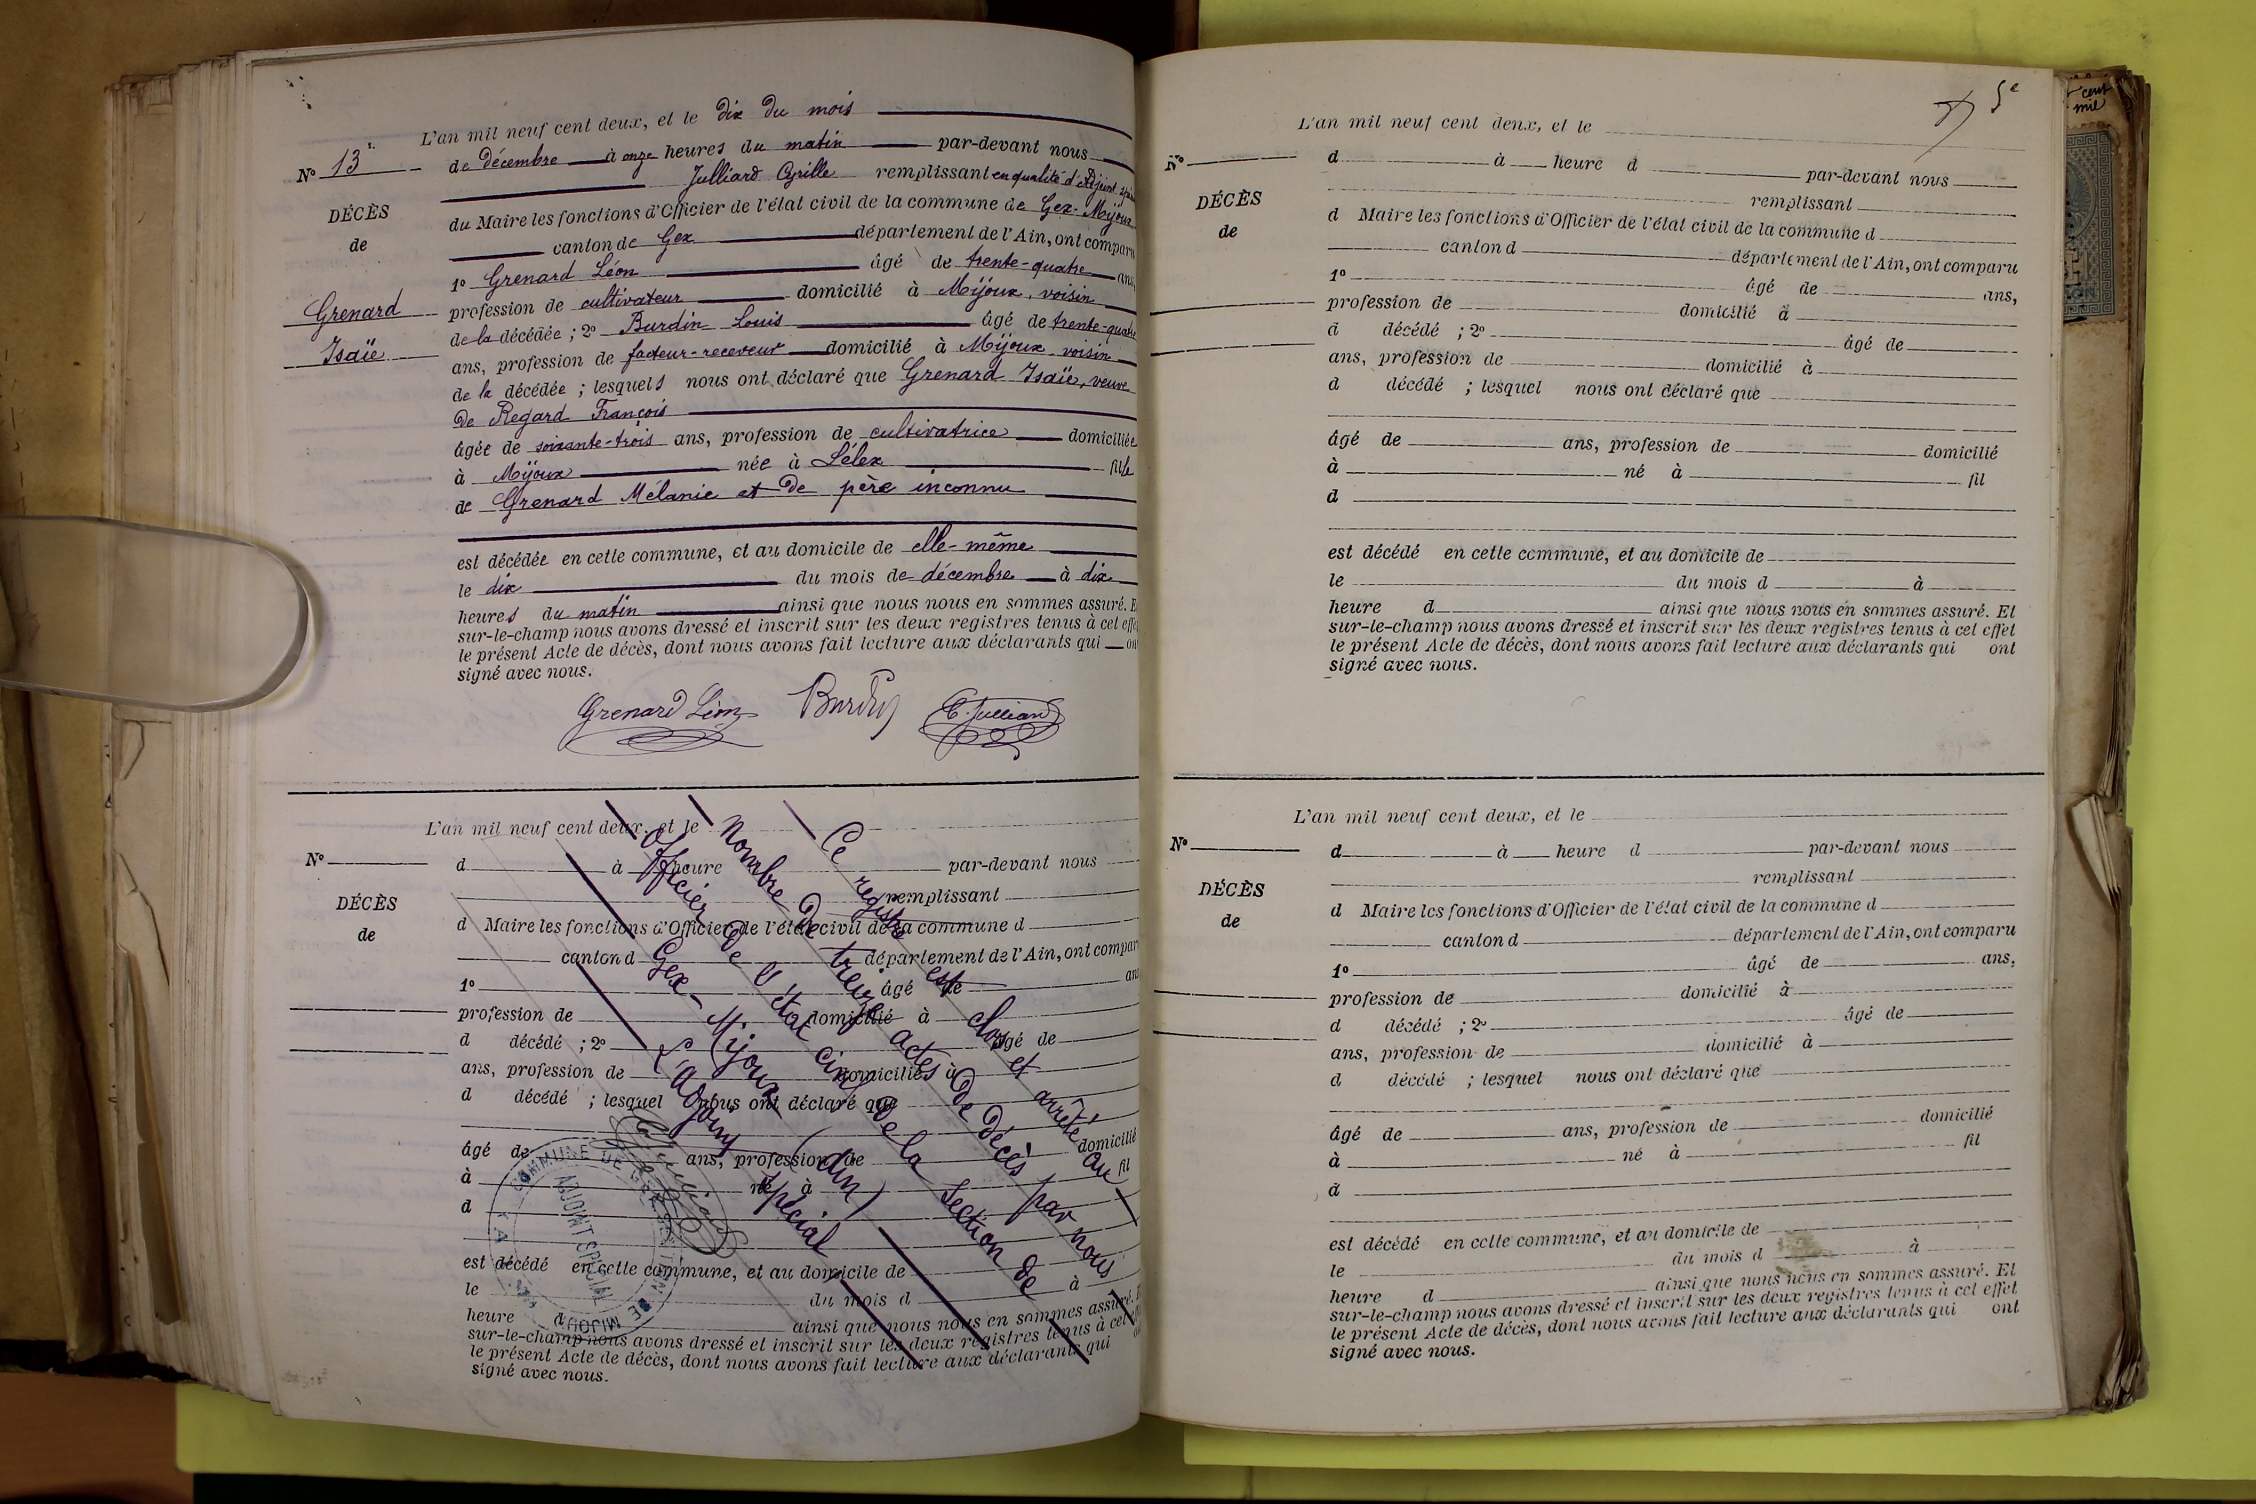 L'an mil neuf cent deux, et le dix du mois
N° 13
de décembre à onze heures du matin par-devant nous
Julliard Cyrille remplissant en qualité d'Adjoint
DÉCÈS
de
du Maire les fonctions d'Officier de l'état civil de la commune de Gex-Mijoux
canton de Gex département de l'Ain, ont comparu
1° Grenard Léon âgé de trente-quatre ans,
Grenard
Isaïe
profession de cultivateur domicilié à Mijoux, voisin
de la décédée ; 2° Burdin Louis âgé de trente-quatre
ans, profession de facteur-receveur domicilié à Mijoux voisin
de la décédée ; lesquels nous ont déclaré que Grenard Isaïe, veuve
de Regard François
âgée de soixante-trois ans, profession de cultivatrice domiciliée
à Mijoux née à Lélex fille
de Grenard Mélanie et de père inconnu
est décédée en cette commune, et au domicile de elle-même
le dix du mois de décembre à dix
heures du matin ainsi que nous nous en sommes assuré. E
sur-le-champ nous avons dressé et inscrit sur les deux registres tenus à cet effe
le présent Acte de décès, dont nous avons fait lecture aux déclarants qui on
signé avec nous.
Grenard Léon Burdin C. Julliard
L'an mil neuf cent deux, et le
N°
d à heure par-devant nous
remplissant
DÉCÈS
de
d Maire les fonctions d'Officier de l'état civil de la commune d
canton d département de l'Ain, ont compar
1° âgé de an
profession de domicilié à
d décédé ; 2° âgé de
ans, profession de domicilié à
d décédé ; lesquel nous ont déclaré que
âgé de ans, profession de domicilié
à né à fil
d
est décédé en cette commune, et au domicile de
le du mois d à
heure d ainsi que nous nous en sommes assuré.
sur-le-champ nous avons dressé et inscrit sur les deux registres tenus à cet
le présent Acte de décès, dont nous avons fait lecture aux déclarants qui
signé avec nous.
Ce registre est clos et arrêté au
nombre de treize actes de décès par nous
officier de l'état civil de la section de
Gex-Mijoux (Ain)
L'adjoint spécial
C. Julliard
COMMUNE DE GEX SECTION DE MIJOUX
ADJOINT SPÉCIAL
(AIN)
5e
L'an mil neuf cent deux, et le
N°
d à heure d par-devant nous
remplissant
DÉCÈS
de
d Maire les fonctions d'Officier de l'état civil de la commune d
canton d département de l'Ain, ont comparu
1° âgé de ans,
profession de domicilié à
d décédé ; 2° âgé de
ans, profession de domicilié à
d décédé ; lesquel nous ont déclaré que
âgé de ans, profession de domicilié
à né à fil
d
est décédé en cette commune, et au domicile de
le du mois d à
heure d ainsi que nous nous en sommes assuré. Et
sur-le-champ nous avons dressé et inscrit sur les deux registres tenus à cet effet
le présent Acte de décès, dont nous avons fait lecture aux déclarants qui ont
signé avec nous.
L'an mil neuf cent deux, et le
N°
d à heure d par-devant nous
remplissant
DÉCÈS
de
d Maire les fonctions d'Officier de l'état civil de la commune d
canton d département de l'Ain, ont comparu
1° âgé de ans,
profession de domicilié à
d décédé ; 2° âgé de
ans, profession de domicilié à
d décédé ; lesquel nous ont déclaré que
âgé de ans, profession de domicilié
à né à fil
d
est décédé en cette commune, et au domicile de
le du mois d à
heure d ainsi que nous nous en sommes assuré. Et
sur-le-champ nous avons dressé et inscrit sur les deux registres tenus à cet effet
le présent Acte de décès, dont nous avons fait lecture aux déclarants qui ont
signé avec nous.
cent
mil